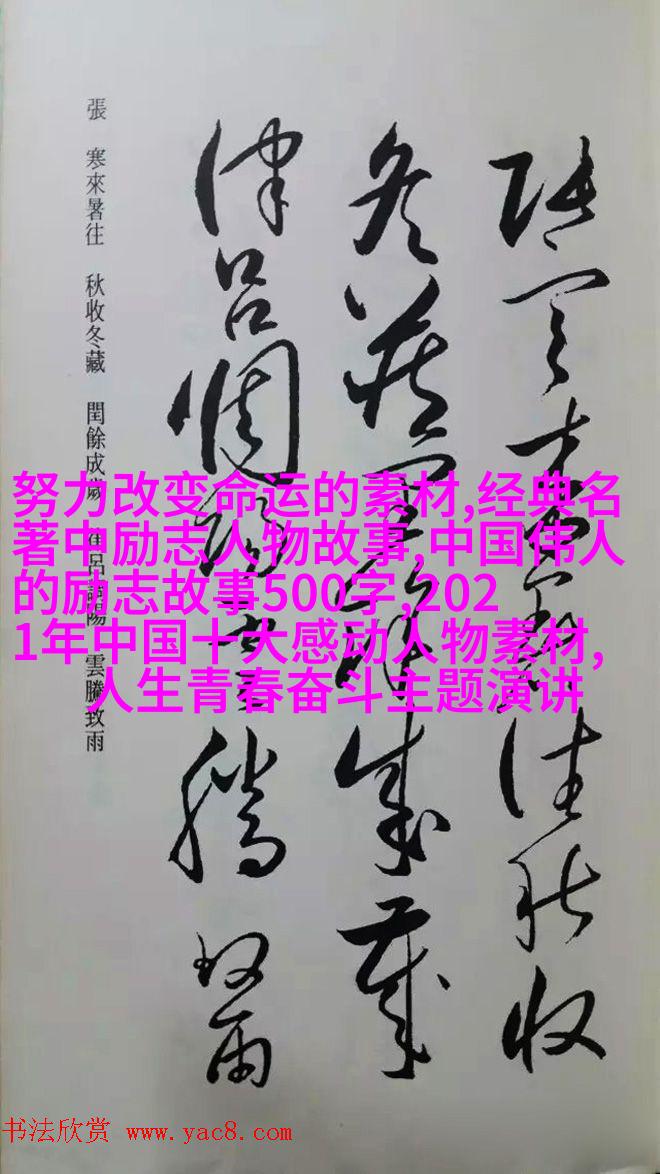 張寒來暑往秋收
冬藏閏餘成歲
律呂調陽雲騰致雨
張 寒來暑往 秋收冬藏 閏餘成歲 律呂調陽 雲騰致雨
努力改变命运的素材,经典名
著中励志人物故事,中国伟人
的励志故事500字,202
1年中国十大感动人物素材,
人生青春奋斗主题演讲
书法欣赏 www.yac8.com